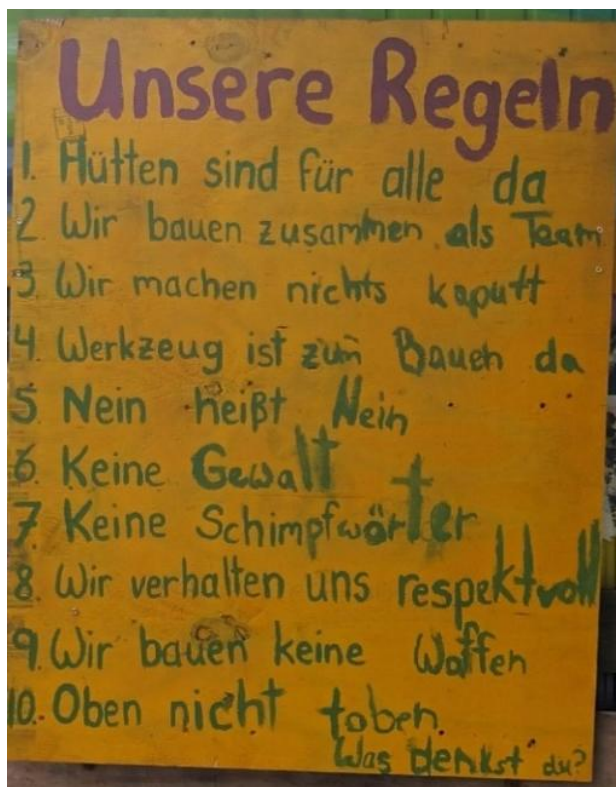 Unsere Regeln
1. Hütten sind für alle da
2. Wir bauen zusammen als Team
3. Wir machen nichts kaputt
4. Werkzeug ist zum Bauen da
5 Nein heißt Nein
6. Keine Gewalt
7. Keine Schimpfwörter
8. Wir verhalten uns respektvoll
9. Wir bauen keine Waffen
10. Oben nicht toben.
Was denkst du?